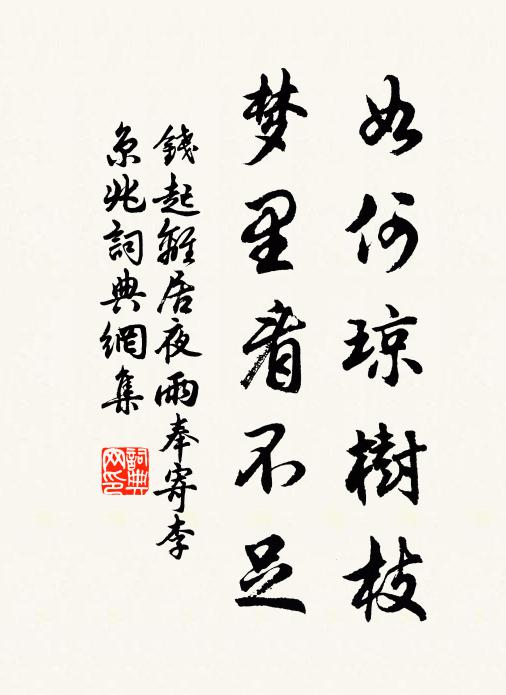 如何琼樹枝
梦里看不足
錢起離居夜雨奉寄李
京兆詞典網集
詞典网印